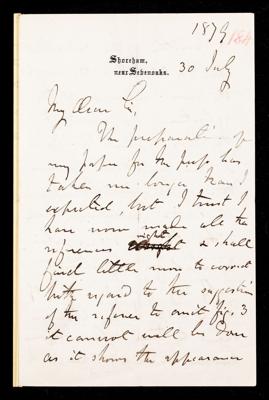 1879 184
Shoreham,
near Sevenoaks.
30 July
My dear Sir,
The preparation of
my paper for the press has
taken me longer than I
expected, but I trust I
have now made all the
references right & shall
find little more to correct
With regard to the suggestion
of the referee to omit fig. 3
it cannot well be done
as it shows the appearance